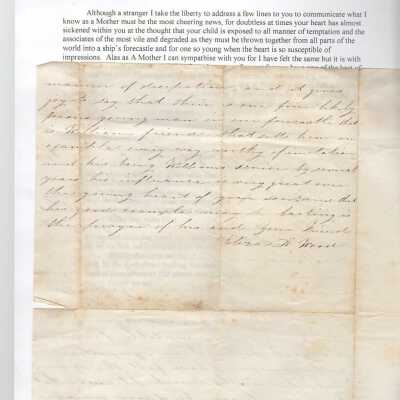 Although a stranger I take the liberty to address a few lines to you to communicate what I
know as a Mother must be the most cheering news, for doubtless at times your heart has almost
sickened within you at the thought that your child is exposed to all manner of temptation and the
associates of the most vile and degraded as they must be thrown together from all parts of the
world into a ship's forecastle and for one so young when the heart is so susceptible of
impressions. Alas as A Mother I can sympathise with you for I have felt the same but it is with
manner of dissipation and it gives
joy to say that there is one fine likely
young man in our forecastle that
is Williams friend that sets him an
example every way worthy of imitation
and his being Williams senior by several
years his influence is very great over
the young heart of your son and that
his good example may be lasting is
the prayer of his and your friend
Eliza Wood